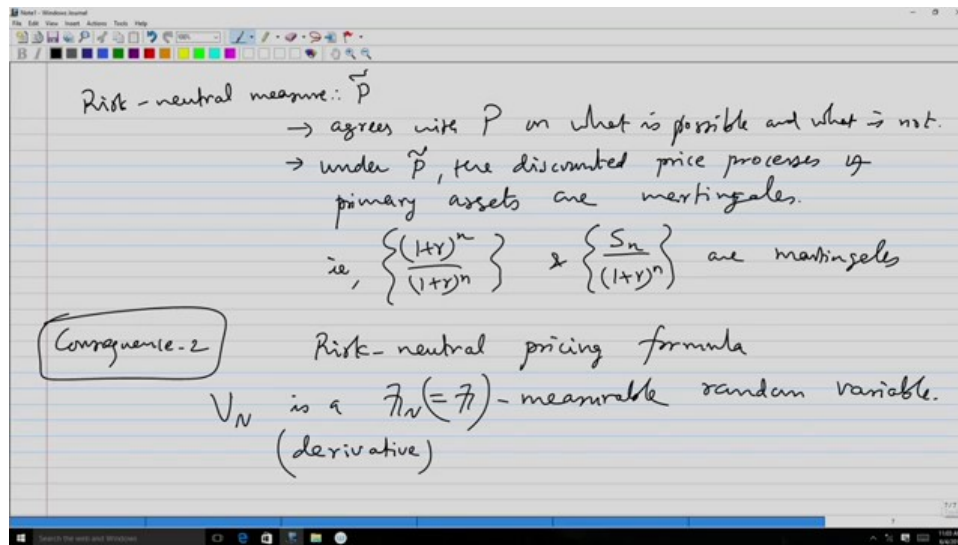 Note1 - Windows Journal
File Edit View Insert Actions Tools Help
Risk-neutral measure: P̃
→ agrees with P on what is possible and what is not.
→ under P̃, the discounted price processes of
primary assets are martingales.
ie, {(1+r)^n / (1+r)^n} & {S_n / (1+r)^n} are martingales
Consequence-2 Risk-neutral pricing formula
V_N is a ℱ_N(=ℱ)-measurable random variable.
(derivative)
Search the web and Windows